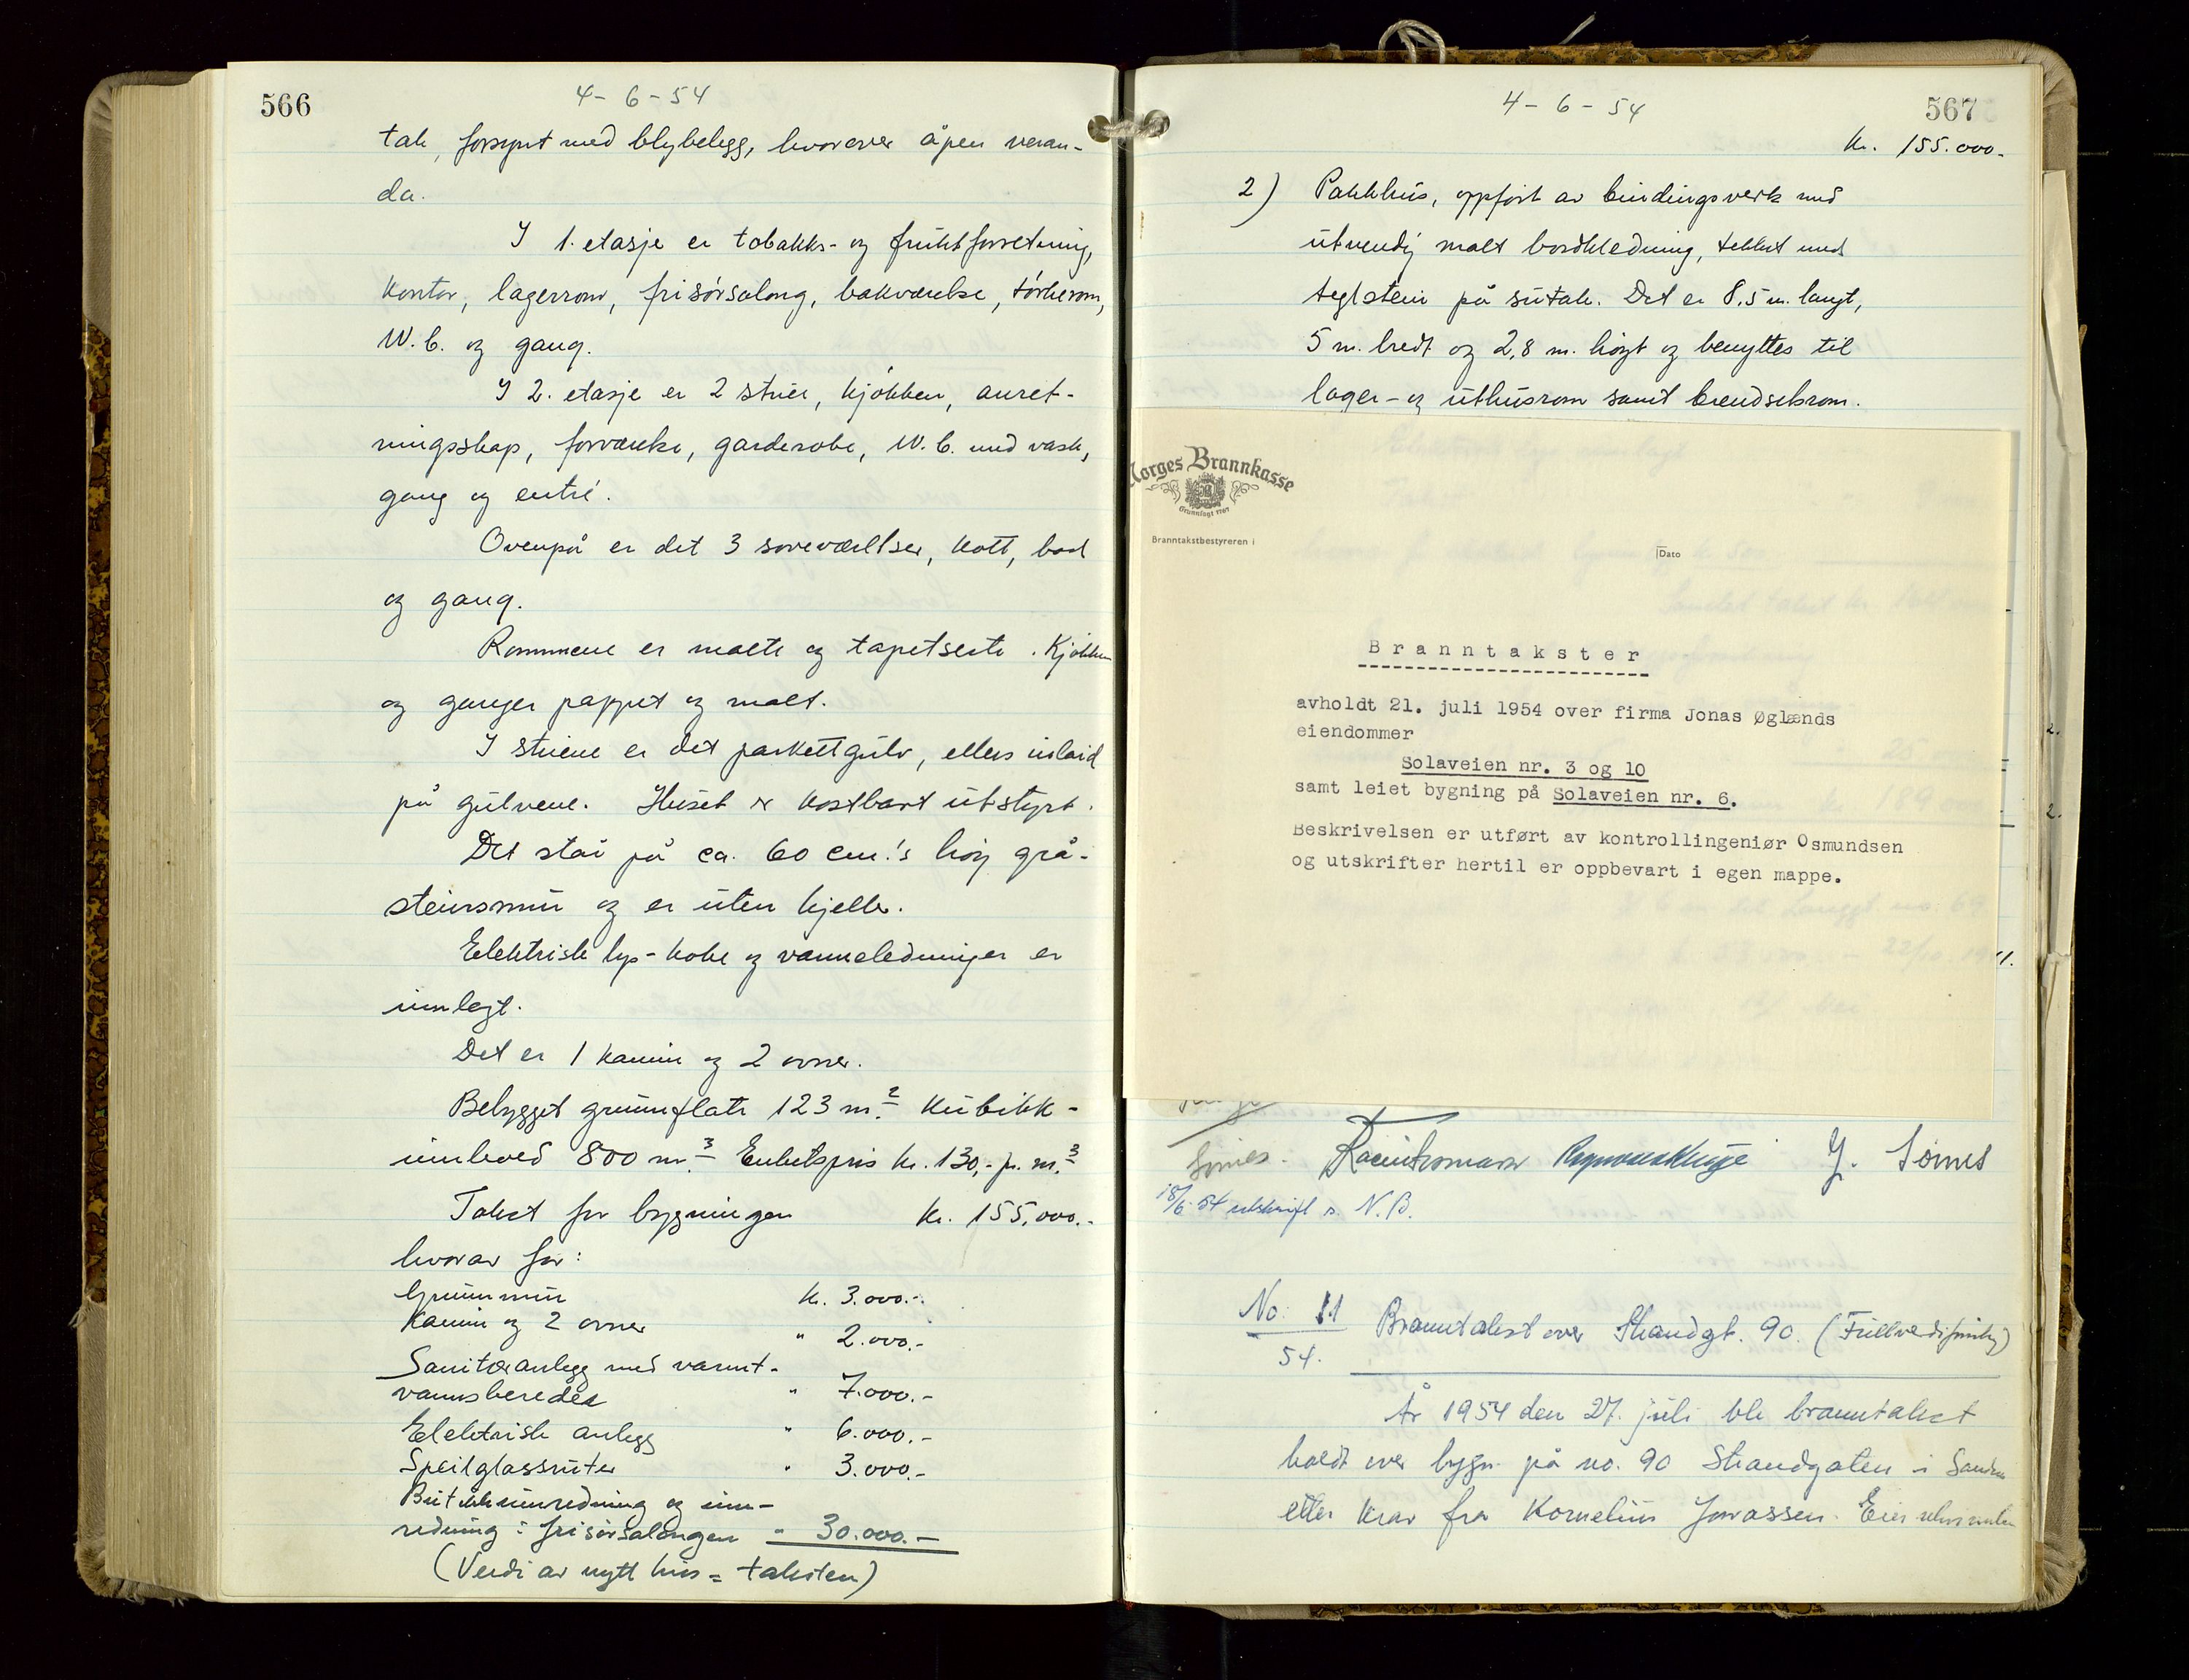 566
4-6-54
tak, forsynt med blybelegg, hvorover åpen veran-
da.
I 1. etasje er tobakks- og fruktforretning,
kontor, lagerrom, frisørsalong, bakværelse, tørkerom,
W.C. og gang.
I 2. etasje er 2 stuer, kjøkken, anret-
ningsskap, forværelse, garderobe, W.C. med vask,
gang og entré.
Ovenpå er det 3 soveværelser, kott, bad
og gang.
Rommene er malte og tapetserte. Kjøkken
og ganger pappet og malt.
I stuene er det parkettgulv, ellers inlaid
på gulvene. Huset er kostbart utstyrt.
Det står på ca. 60 cm.'s høy grå-
steinsmur og er uten kjeller.
Elektrisk lys- koke og varmeledninger er
innlagt.
Det er 1 kamin og 2 ovner.
Bebygget grunnflate 123 m.² Kubikk-
innhold 800 m.³ Enhetspris kr. 130,- pr. m.³
Takst for bygningen kr. 155.000.-
hvorav for:
Grunnmur kr. 3.000.-
Kamin og 2 ovner " 2.000.-
Sanitæranlegg med varmt-
vannsbereder " 7.000.-
Elektrisk anlegg " 6.000.-
Speilglassruter " 3.000.-
Butikkinnredning og inn-
redning i frisørsalongen " 30.000.-
(Verdi av nytt hus = taksten)
4-6-54
567
kr. 155.000-
2) Pakkhus, oppført av bindingsverk med
utvendig malt bordkledning, tekket med
teglstein på sutak. Det er 8,5 m. langt,
5 m. bredt og 2,8 m. høyt og benyttes til
lager- og uthusrom samt brendselsrom.
Norges Brannkasse
Grunnlagt 1767
Branntakstbestyreren i
Dato
Branntakster
avholdt 21. juli 1954 over firma Jonas Øglænds
eiendommer
Solaveien nr. 3 og 10
samt leiet bygning på Solaveien nr. 6.
Beskrivelsen er utført av kontrollingeniør Osmundsen
og utskrifter hertil er oppbevart i egen mappe.
Sømes. Y. Sømes
18/6-54 utskrift s. N.B.
No: 11 Branntakst over Strandgt. 90. (Fullverdiforsikr)
54.
År 1954 den 27. juli ble branntakst
holdt over bygn. på no. 90 Strandgaten i Sandnes
etter krav fra Kornelius Jonassen. Eier